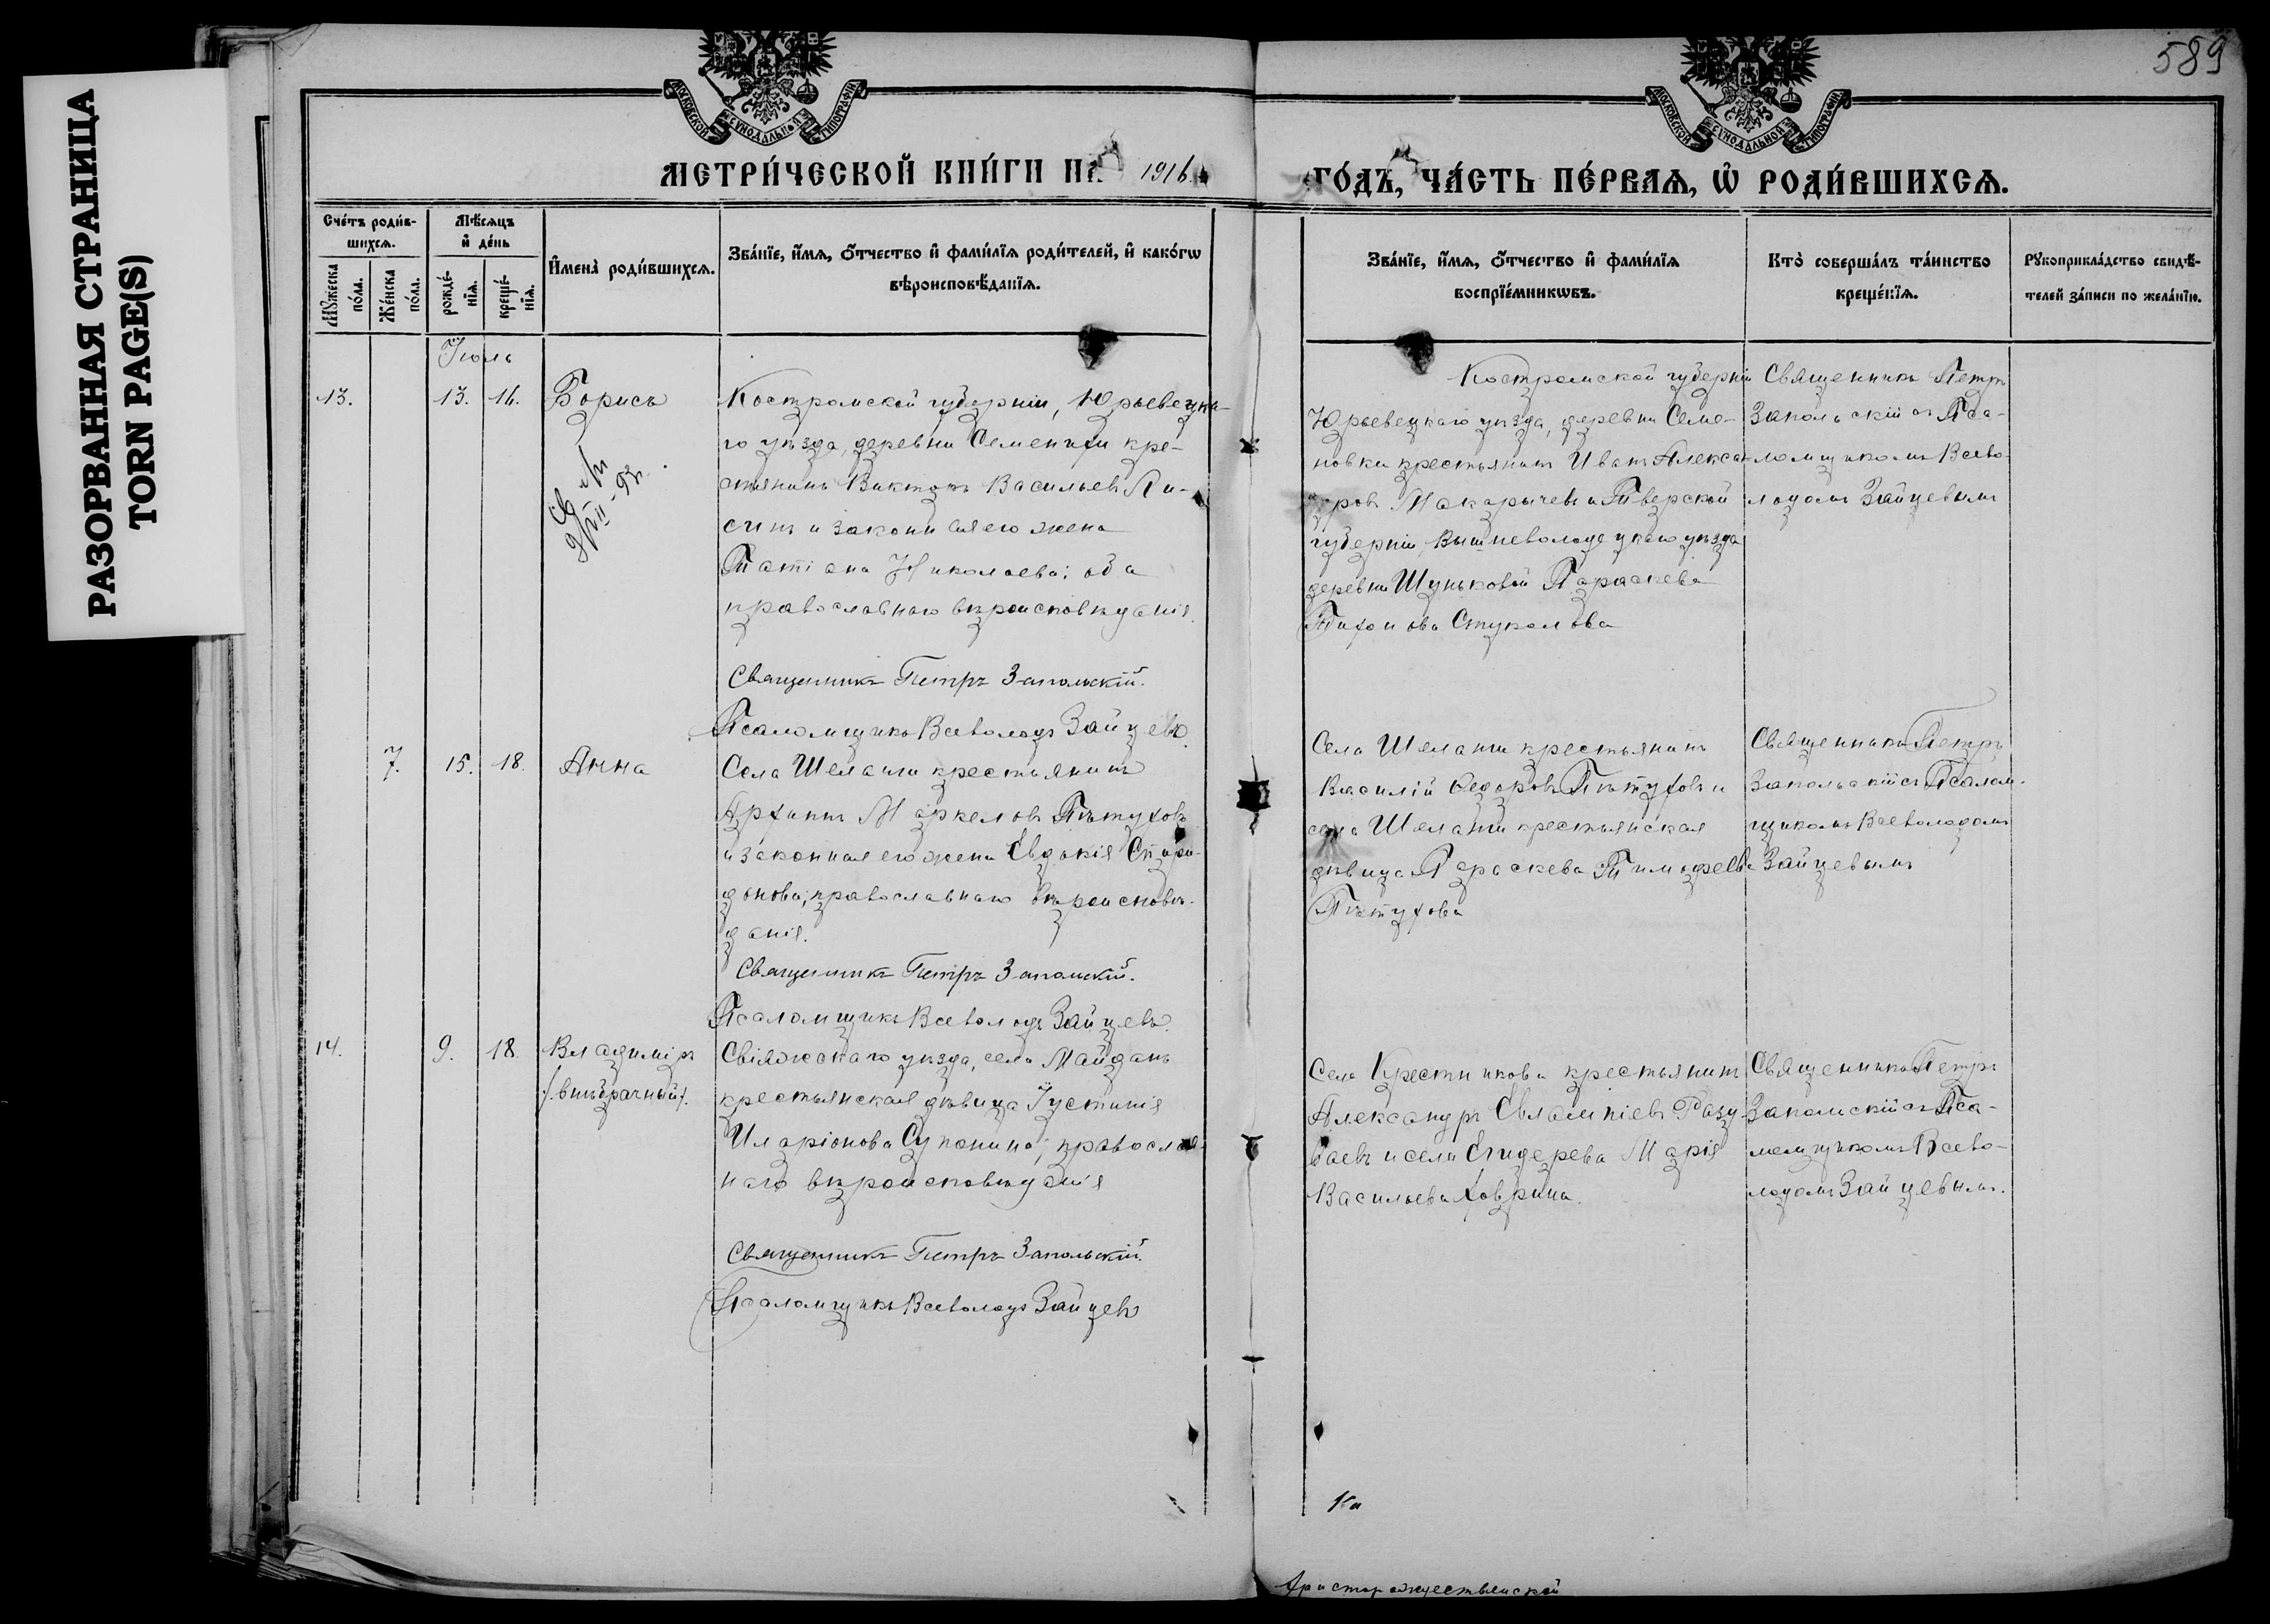 РАЗОРВАННАЯ СТРАНИЦА
TORN PAGE(S)
589
МОСКОВСКОЙ СѴНОДАЛЬНОЙ ТИПОГРАФІИ
МОСКОВСКОЙ СѴНОДАЛЬНОЙ ТИПОГРАФІИ
МЕТРИ́ЧЕСКОЙ КНИ́ГИ НА 1916
ГО́ДЪ, ЧА́СТЬ ПЕ́РВАЯ, Ѡ҆ РОДИ́ВШИХСЯ.
Сче́тъ роди́в-
шихся.
Мꙋжеска
по́ла.
Же́нска
по́ла.
Мѣ́сяцъ
и҆ де́нь
рожде́-
нїя.
креще́-
нїя.
И҆мена̀ роди́вшихся.
Зва́нїе, и҆́мя, ѻ҆́тчество и҆ фами́лїя роди́телей, и҆ како́гѡ
вѣроисповѣ́данїя.
Зва́нїе, и҆́мя, ѻ҆́тчество и҆ фами́лїя
воспрїе́мникѡвъ.
Кто̀ соверша́лъ та́инство
креще́нїя.
Рꙋкоприкла́дство свидѣ́-
телей за́писи по жела́нїю.
Іюль
13.
13.
16.
Борисъ
Костромской губерніи, Юрьевецка-
го уѣзда, деревни Семенихи кре-
стьянинъ Викторъ Васильевъ Ли-
синъ и законная его жена
Татіана Николаева; оба
православнаго вѣроисповѣданія.
Священникъ Петръ Запольскій.
Псаломщикъ Всеволодъ Зайцевъ.
Костромской губерніи
Юрьевецкаго уѣзда, деревни Семе-
новки крестьянинъ Иванъ Алексан-
дровъ Макарычевъ и Тверской
губерніи, Вышневолоцкаго уѣзда
деревни Шуньковой Параскева
Тихонова Стукалова
Священникъ Петръ
Запольскій съ Пса-
ломщикомъ Всево-
лодомъ Зайцевымъ
7.
15.
18.
Анна
Села Шеланги крестьянинъ
Архипъ Маркеловъ Пѣтуховъ
и законная его жена Евдокія Спири-
донова; православнаго вѣроисповѣ-
данія.
Священникъ Петръ Запольскій.
Псаломщикъ Всеволодъ Зайцевъ.
Села Шеланги крестьянинъ
Василій Ѳедоровъ Пѣтуховъ и
села Шеланги крестьянская
дѣвица Параскева Тимофеева
Пѣтухова
Священникъ Петръ
Запольскій съ Псалом-
щикомъ Всеволодомъ
Зайцевымъ
14.
9.
18.
Владиміръ
/.внѣбрачный/.
Свіяжскаго уѣзда, села Майданъ
крестьянская дѣвица Іустинія
Иларіонова Супонина; православ-
наго вѣроисповѣданія
Священникъ Петръ Запольскій.
Псаломщикъ Всеволодъ Зайцевъ
Села Крестникова крестьянинъ
Александръ Евлампіевъ Разу-
ваевъ и села Егидерева Марія
Васильева Ховрина.
Священникъ Петръ
Запольскій съ Пса-
ломщикомъ Всево-
лодомъ Зайцевымъ.
Ка
Христорождественской